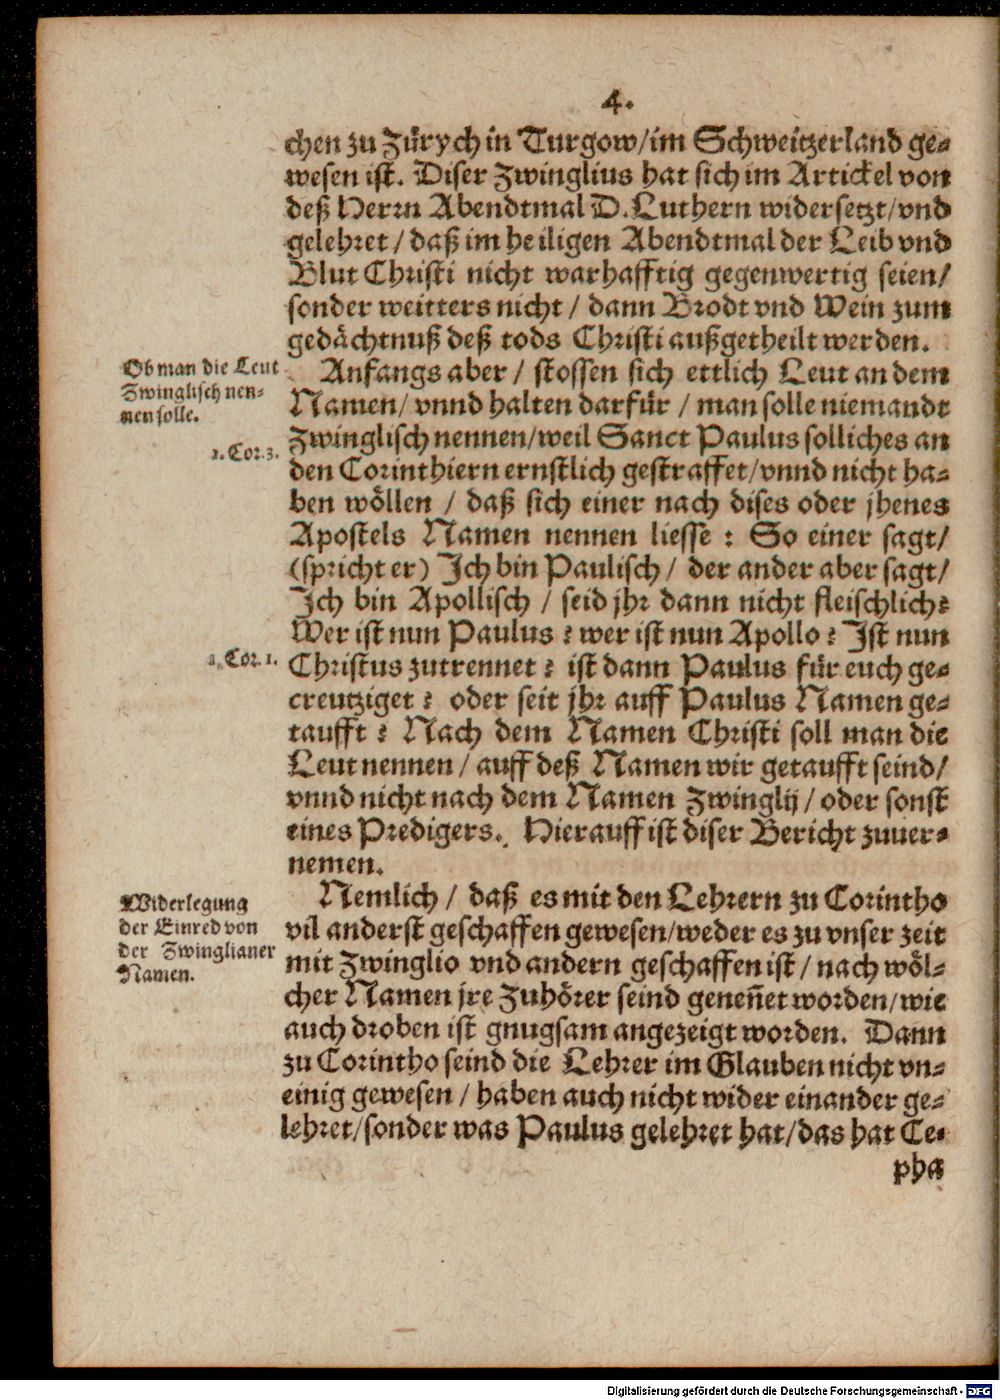 4.
chen zu Zürych in Turgow/im Schweitzerland ge-
wesen ist. Diser Zwinglius hat sich im Artickel von
deß Herrn Abendtmal D. Luthern widersetzt/vnd
gelehret/daß im heiligen Abendtmal der Leib vnd
Blut Christi nicht warhafftig gegenwertig seien/
sonder weitters nicht/dann Brodt vnd Wein zum
gedächtnuß deß tods Christi außgetheilt werden.
Ob man die Leut
Zwinglisch nen-
nen solle.
Anfangs aber/stossen sich ettlich Leut an dem
Namen/vnnd halten darfür/man solle niemandt
Zwinglisch nennen/weil Sanct Paulus solliches an
1. Cor. 3.
den Corinthiern ernstlich gestraffet/vnnd nicht ha-
ben wöllen/daß sich einer nach dises oder jhenes
Apostels Namen nennen liesse: So einer sagt/
(spricht er) Ich bin Paulisch/der ander aber sagt/
Ich bin Apollisch/seid jhr dann nicht fleischlich?
Wer ist nun Paulus? wer ist nun Apollo? Ist nun
1. Cor. 1.
Christus zutrennet? ist dann Paulus für euch ge-
creutziget? oder seit jhr auff Paulus Namen ge-
taufft? Nach dem Namen Christi soll man die
Leut nennen/auff deß Namen wir getaufft seind/
vnnd nicht nach dem Namen Zwinglij/oder sonst
eines Predigers. Hierauff ist diser Bericht zuuer-
nemen.
Widerlegung
der Einred von
der Zwinglianer
Namen.
Nemlich/daß es mit den Lehrern zu Corintho
vil anderst geschaffen gewesen/weder es zu vnser zeit
mit Zwinglio vnd andern geschaffen ist/nach wöl-
cher Namen jre Zuhörer seind geneñet worden/wie
auch droben ist gnugsam angezeigt worden. Dann
zu Corintho seind die Lehrer im Glauben nicht vn-
einig gewesen/haben auch nicht wider einander ge-
lehret/sonder was Paulus gelehret hat/das hat Ce-
pha
Digitalisierung gefördert durch die Deutsche Forschungsgemeinschaft - DFG